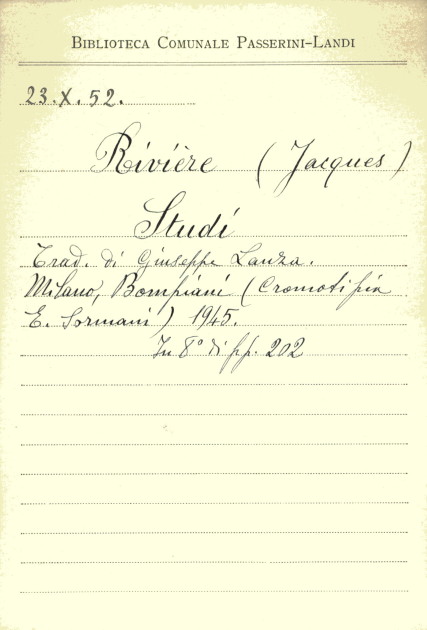 BIBLIOTECA COMUNALE PASSERINI-LANDI
23.X.52.
Rivière (Jacques)
Studi
Trad. di Giuseppe Lanza.
Milano, Bompiani (Cromotipia
E. Sormani) 1945.
In 8° di pp. 202